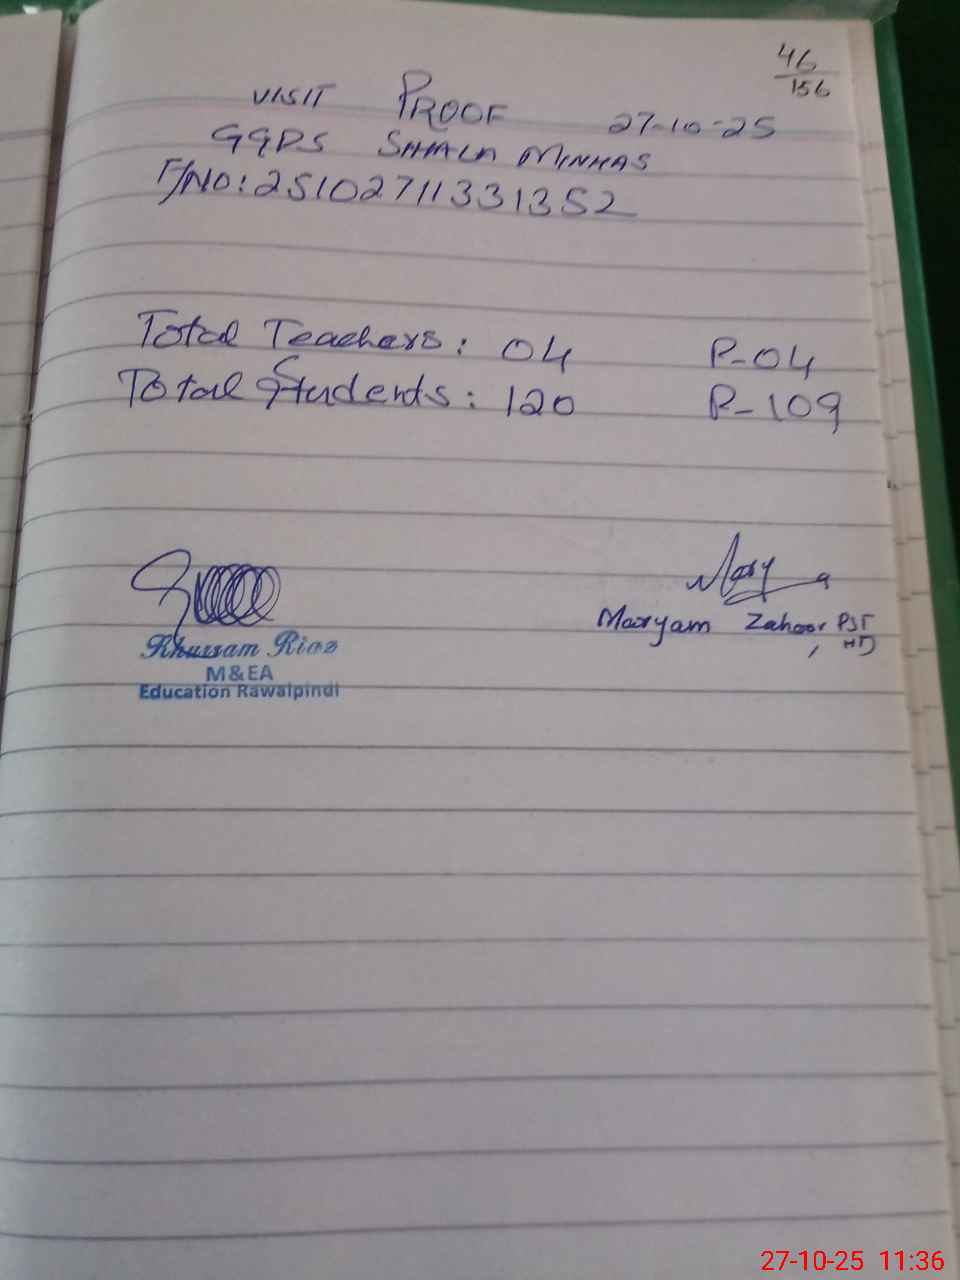 46
156
VISIT PROOF 27-10-25
GGPS SAHALA MINHAS
F/NO: 25102711331352
Total Teachers: 04 P-04
Total Students: 120 P-109
Mary
Maryam Zahoor PST
, HT
Khurram Riaz
M&EA
Education Rawalpindi
27-10-25 11:36